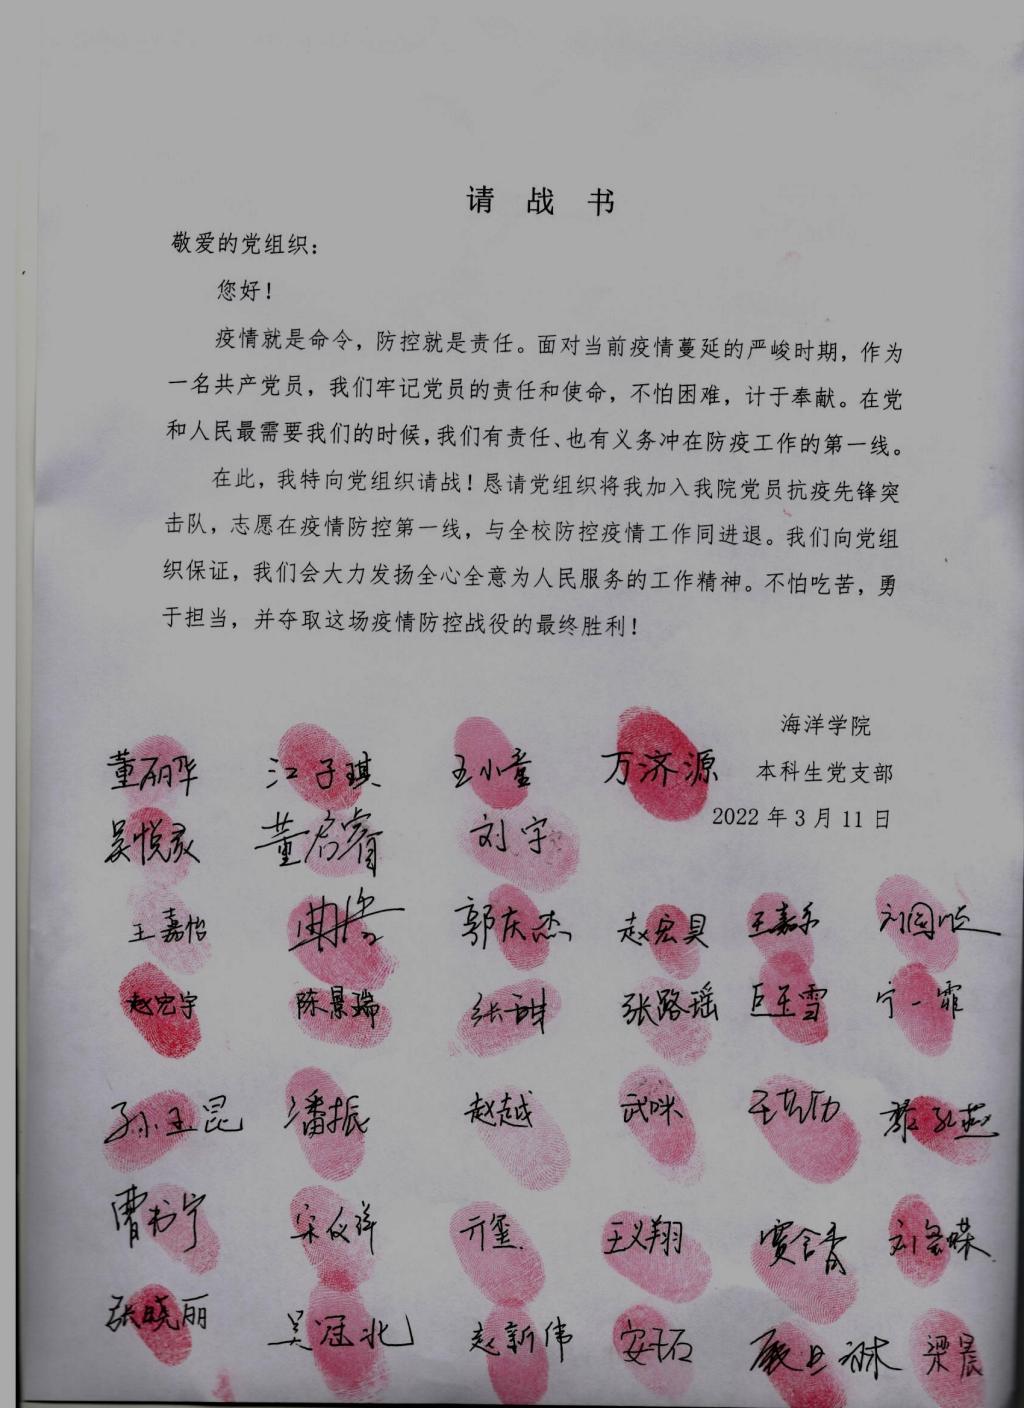 请战书
敬爱的党组织：
您好！
疫情就是命令，防控就是责任。面对当前疫情蔓延的严峻时期，作为
一名共产党员，我们牢记党员的责任和使命，不怕困难，计于奉献。在党
和人民最需要我们的时候，我们有责任、也有义务冲在防疫工作的第一线。
在此，我特向党组织请战！恳请党组织将我加入我院党员抗疫先锋突
击队，志愿在疫情防控第一线，与全校防控疫情工作同进退。我们向党组
织保证，我们会大力发扬全心全意为人民服务的工作精神。不怕吃苦，勇
于担当，并夺取这场疫情防控战役的最终胜利！
海洋学院
本科生党支部
2022年3月11日
董丽华 江子琪 王小童 万济源
董启睿 刘宇
王嘉怡 郭庆杰 赵宏昊
赵宏宇 陈景瑞 张路瑶 宁一霏
孙玉昆 潘振 赵越 武咪
曹书宁 宋仪祥 王义翔 贾含香
张晓丽 吴冠北 赵新伟 梁晨